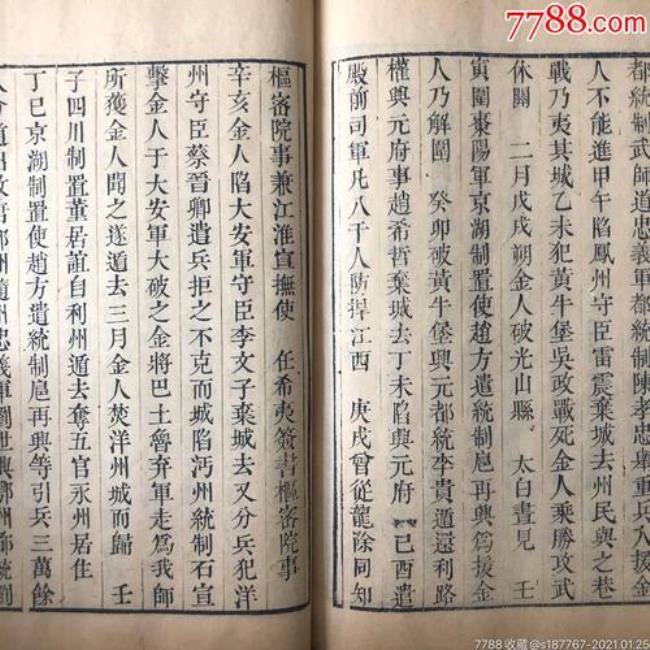 7788.com
都統制武師道忠義軍都統制陳孝忠率軍兵入援金
人不能進甲午陷鳳州守臣雷震棄城去州民與之巷
戰乃夷其城乙未犯黃牛堡吳政戰死金人乘勝攻武
休關 二月戊戌朔金人破光山縣 太白晝見 壬
寅圍棗陽軍京湖制置使趙方遣統制扈再興為援金
人乃解圍 癸卯破黃牛堡興元都統李貴遁還利路
權興元府事趙希哲棄城去丁未陷興元府 己酉遣
殿前司軍凡八千人防捍江西 庚戌曾從龍除同知
樞密院事兼江淮宣撫使 任希夷簽書樞密院事
辛亥金人陷大安軍守臣李文子棄城去又分兵犯洋
州守臣蔡晉卿遣兵拒之不克而城陷沔州統制石宣
擊金人于大安軍大破之金將巴土魯弃軍走為我師
所獲金人聞之遂遁去三月金人焚洋州城而歸 壬
子四川制置董居誼自利州遁去奪五官永州居住
丁巳京湖制置使趙方遣統制扈再興等引兵三萬餘
人分道
7788收藏@s187767-2021.01.25